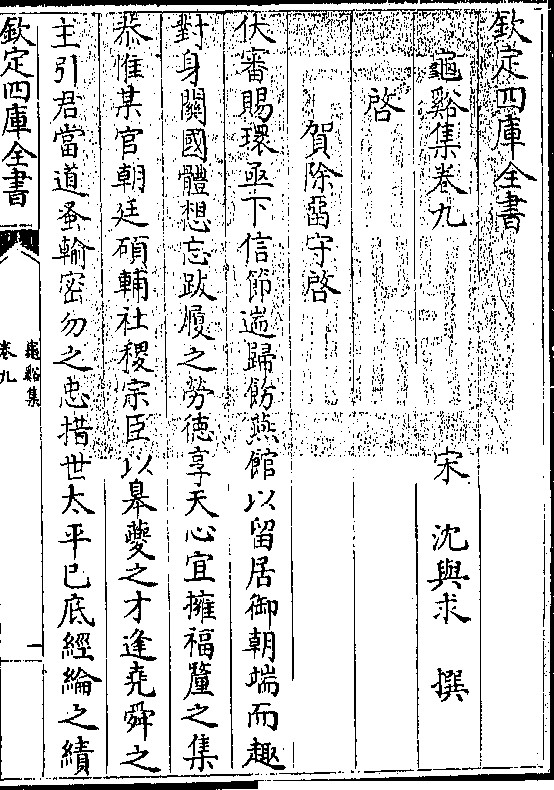 欽定四庫全書
龜谿集卷九
宋 沈與求 撰
啓
賀除留守啓
伏審賜環亟下信節遄歸飭燕館以留居御朝端而趣
對身關國體想忘跋履之勞德享天心宜擁福釐之集
恭惟某官朝廷碩輔社稷宗臣以皋夔之才逢堯舜之
主引君當道蚤輸密勿之忠措世太平已底經綸之績
欽定四庫全書
龜谿集
卷九
一